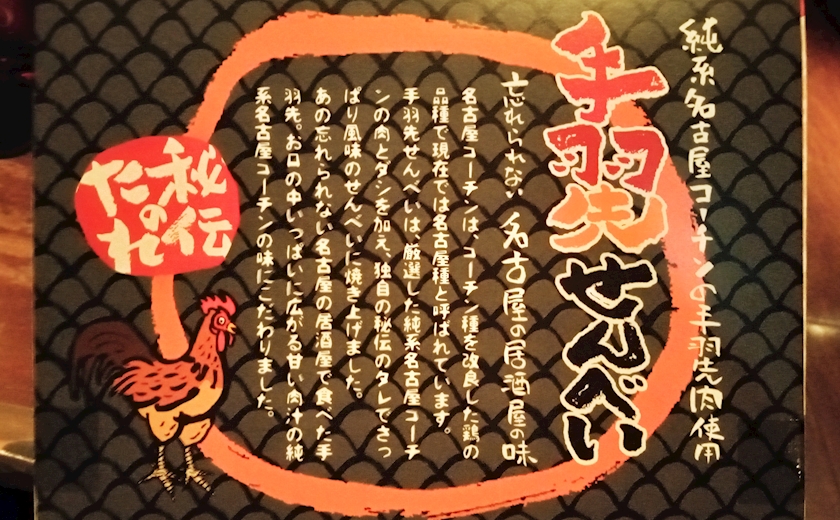 純系名古屋コーチンの手羽先肉使用
手羽先せんべい
忘れられない 名古屋の居酒屋の味
名古屋コーチンは、コーチン種を改良した鶏の
品種で現在では名古屋種と呼ばれています。
手羽先せんべいは、厳選した純系名古屋コーチ
ンの肉とダシを加え、独自の秘伝のタレでさっ
ぱり風味のせんべいに焼き上げました。
あの忘れられない名古屋の居酒屋で食べた手
羽先。お口の中いっぱいに広がる甘い肉汁の純
系名古屋コーチンの味にこだわりました。
秘伝
の
たれ